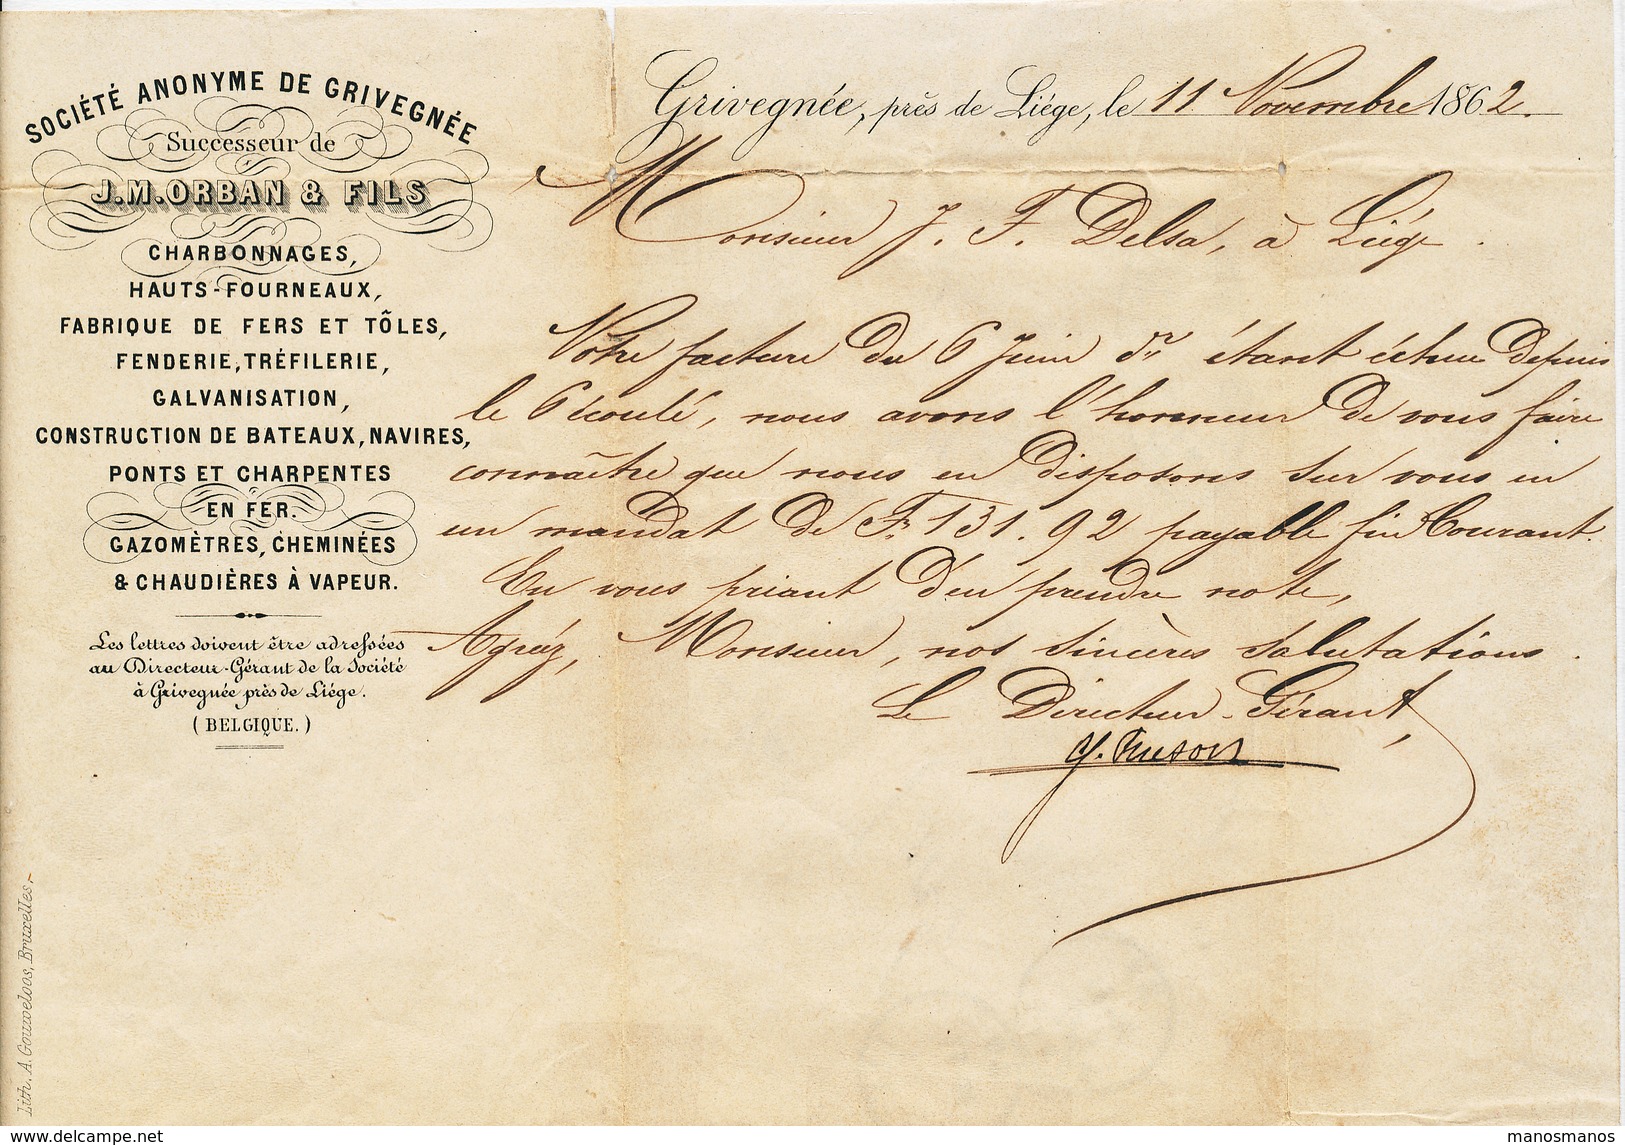 SOCIÉTÉ ANONYME DE GRIVEGNÉE
Successeur de
J.M.ORBAN & FILS
CHARBONNAGES,
HAUTS-FOURNEAUX,
FABRIQUE DE FERS ET TÔLES,
FENDERIE, TRÉFILERIE,
GALVANISATION,
CONSTRUCTION DE BATEAUX, NAVIRES,
PONTS ET CHARPENTES
EN FER.
GAZOMÈTRES, CHEMINÉES
& CHAUDIÈRES À VAPEUR.
Les lettres doivent être adressées
au Directeur-Gérant de la Société
à Grivegnée près de Liége.
(BELGIQUE.)
Grivegnée, près de Liége, le 11 Novembre 1862.
Monsieur J. F. Delsa, à Liége.
Votre facture du 6 Juin dr étant échue depuis
le 6 écoulé, nous avons l'honneur de vous faire
connaître que nous en disposons sur vous en
un mandat de Fr 131.92 payable fin Courant.
En vous priant d'en prendre note,
Agréez, Monsieur, nos sincères salutations.
Le Directeur-Gérant,
Lith. A. Gouweloos, Bruxelles.
manosmanos
www.delcampe.net